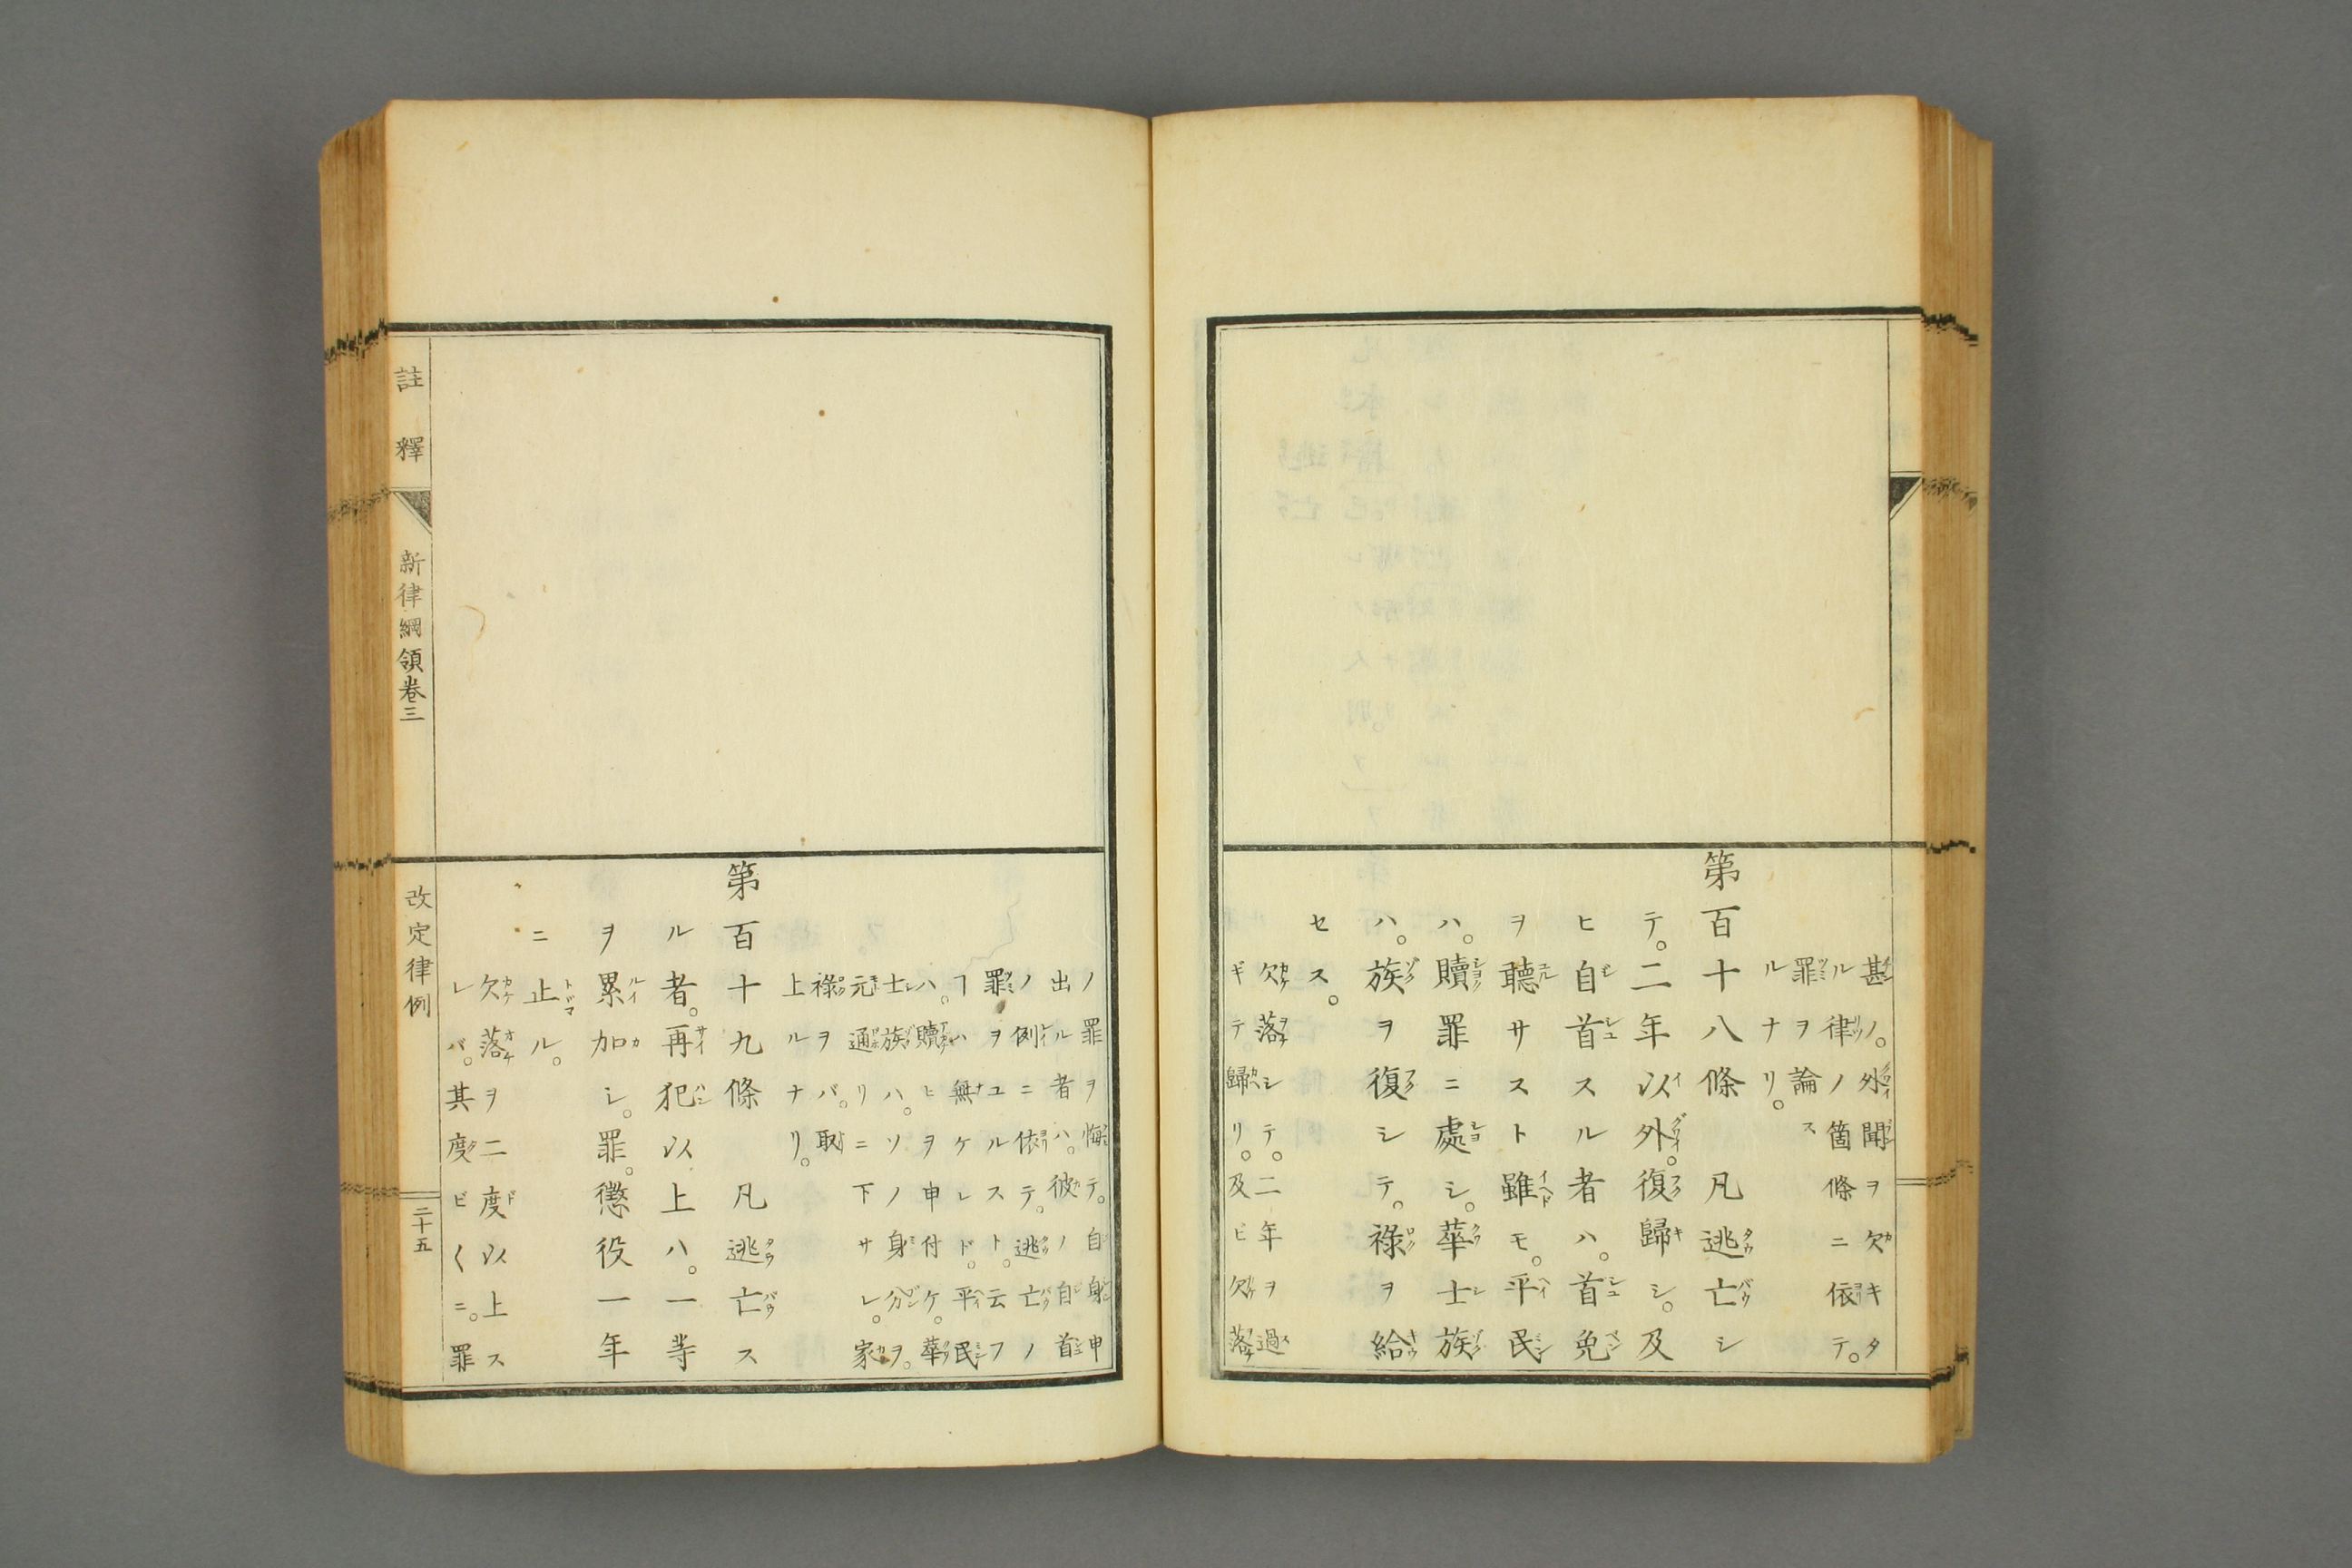 甚ノ。外聞ヲ欠キタ
ル律ノ箇條ニ依テ。
罪ヲ論ス
ルナリ。
第百十八條 凡逃亡シ
テ。二年以外。復歸シ。及
ヒ自首スル者ハ。首免
ヲ聽サスト雖モ。平民
ハ。贖罪ニ處シ。華士族
ハ。族ヲ復シテ。祿ヲ給
セス。
欠落シテ。二年ヲ過
ギテ。歸リ。及ビ欠落
ノ罪ヲ悔テ。自身申
出ル者ハ。彼ノ自首
ノ例ニ依テ。逃亡ノ
罪ヲユルスト。云フ
ヿハ無ケレド。平民
ハ。贖ヒヲ申付ケ。華
士族ハ。ソノ身分ヲ。
元通リニ下サレ。家
祿ヲバ。取
上ルナリ。
第百十九條 凡逃亡ス
ル者。再犯以上ハ。一等
ヲ累加シ。罪。懲役一年
ニ止ル。
欠落ヲ二度以上ス
レバ。其度ビ〱ニ。罪
註釋 新律綱領卷三 改定律例 二十五